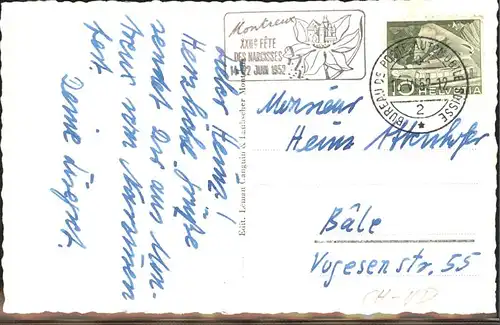 Montreux
XXIIIe FÊTE
DES NARCISSES
14-22 JUIN 1952
BUREAU DE POSTE AUTOMOBILE SUISSE
2
10
HELVETIA
Lieber Heinz!
Herzliche Grüsse
sendet Dir aus Mon-
treux am Narzissen
fest
Deine
Edit. Léman Canguin & Laubscher Montreux
Monsieur
Heinz
Bâle
Vogesenstr. 55
CH-VD